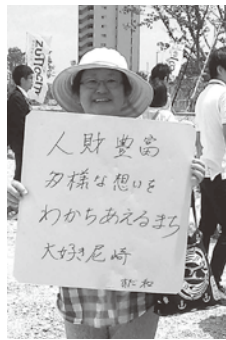 人財豊富
多様な想いを
わかちあえるまち
大好き尼崎